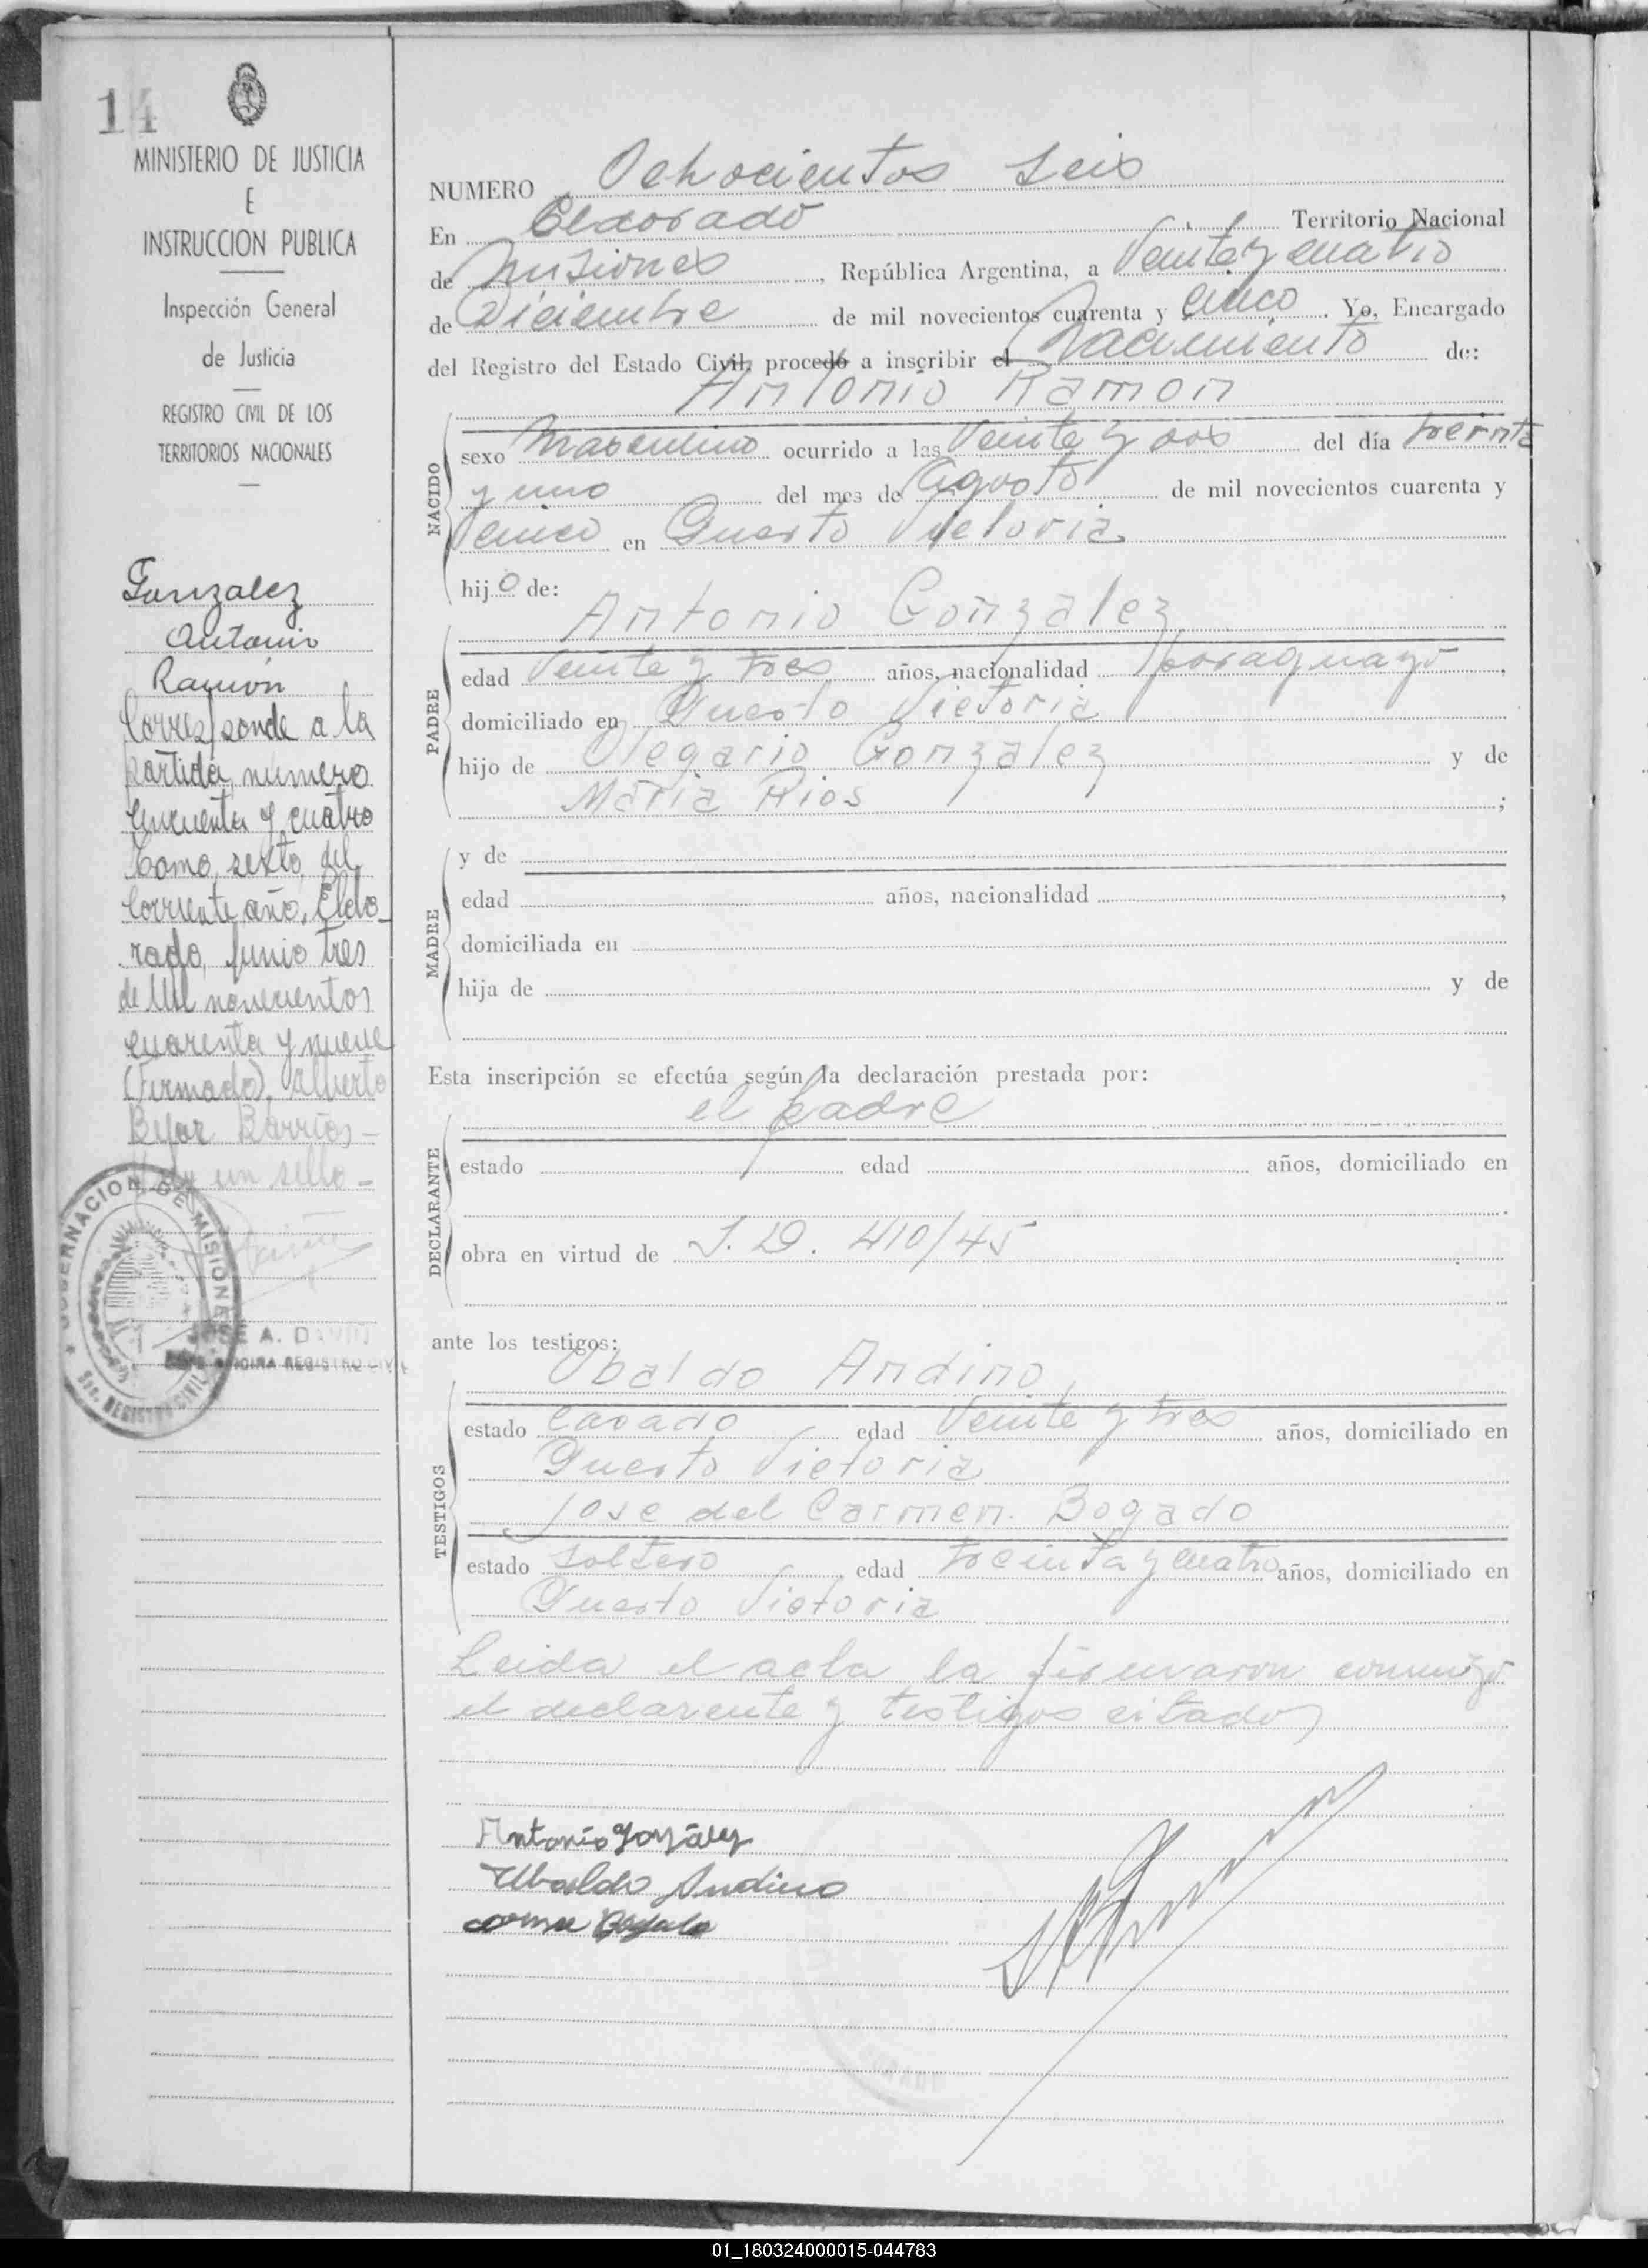 14
MINISTERIO DE JUSTICIA
E
INSTRUCCION PUBLICA
Inspección General
de Justicia
REGISTRO CIVIL DE LOS
TERRITORIOS NACIONALES
Gonzalez
Antonio
Ramón
Corresponde a la
partida, numero
cincuenta y cuatro
tomo, sexto, del
corriente, año, Eldo_
rado, Junio tres
de Mil novecientos
cuarenta y nueve
(Firmado), Alberto
Barrios -
Hay un sello -
GOBERNACION DE MISIONES
SEC. REGISTRO CIVIL
JOSE A. DAVIÑ
JEFE OFICINA REGISTRO CIVIL
NUMERO Ochocientos Seis
En Eldorado Territorio Nacional
de Misiones, República Argentina, a Veinte y cuatro
de Diciembre de mil novecientos cuarenta y cinco. Yo, Encargado
del Registro del Estado Civil, procedo a inscribir el Nacimiento de:
Antonio Ramon
NACIDO
sexo Masculino ocurrido a las Veinte y dos del día treinta
y uno del mes de Agosto de mil novecientos cuarenta y
cinco en Puerto Victoria
hijo de:
PADRE
Antonio González
edad Veinte y tres años, nacionalidad paraguayo,
domiciliado en Puerto Victoria
hijo de Olegario González y de
María Ríos;
MADRE
y de
edad años, nacionalidad,
domiciliada en
hija de y de
Esta inscripción se efectúa según la declaración prestada por:
el padre
DECLARANTE
estado edad años, domiciliado en
obra en virtud de S. D. 410/45
ante los testigos:
TESTIGOS
Ubaldo Andino
estado Casado edad Veinte y tres años, domiciliado en
Puerto Victoria
Jose del Carmen. Bogado
estado soltero edad treinta y cuatro años, domiciliado en
Puerto Victoria
Leida el acta la firmaron conmigo
el declarente y testigos citados
Antonio González
Ubaldo Andino
01_180324000015-044783